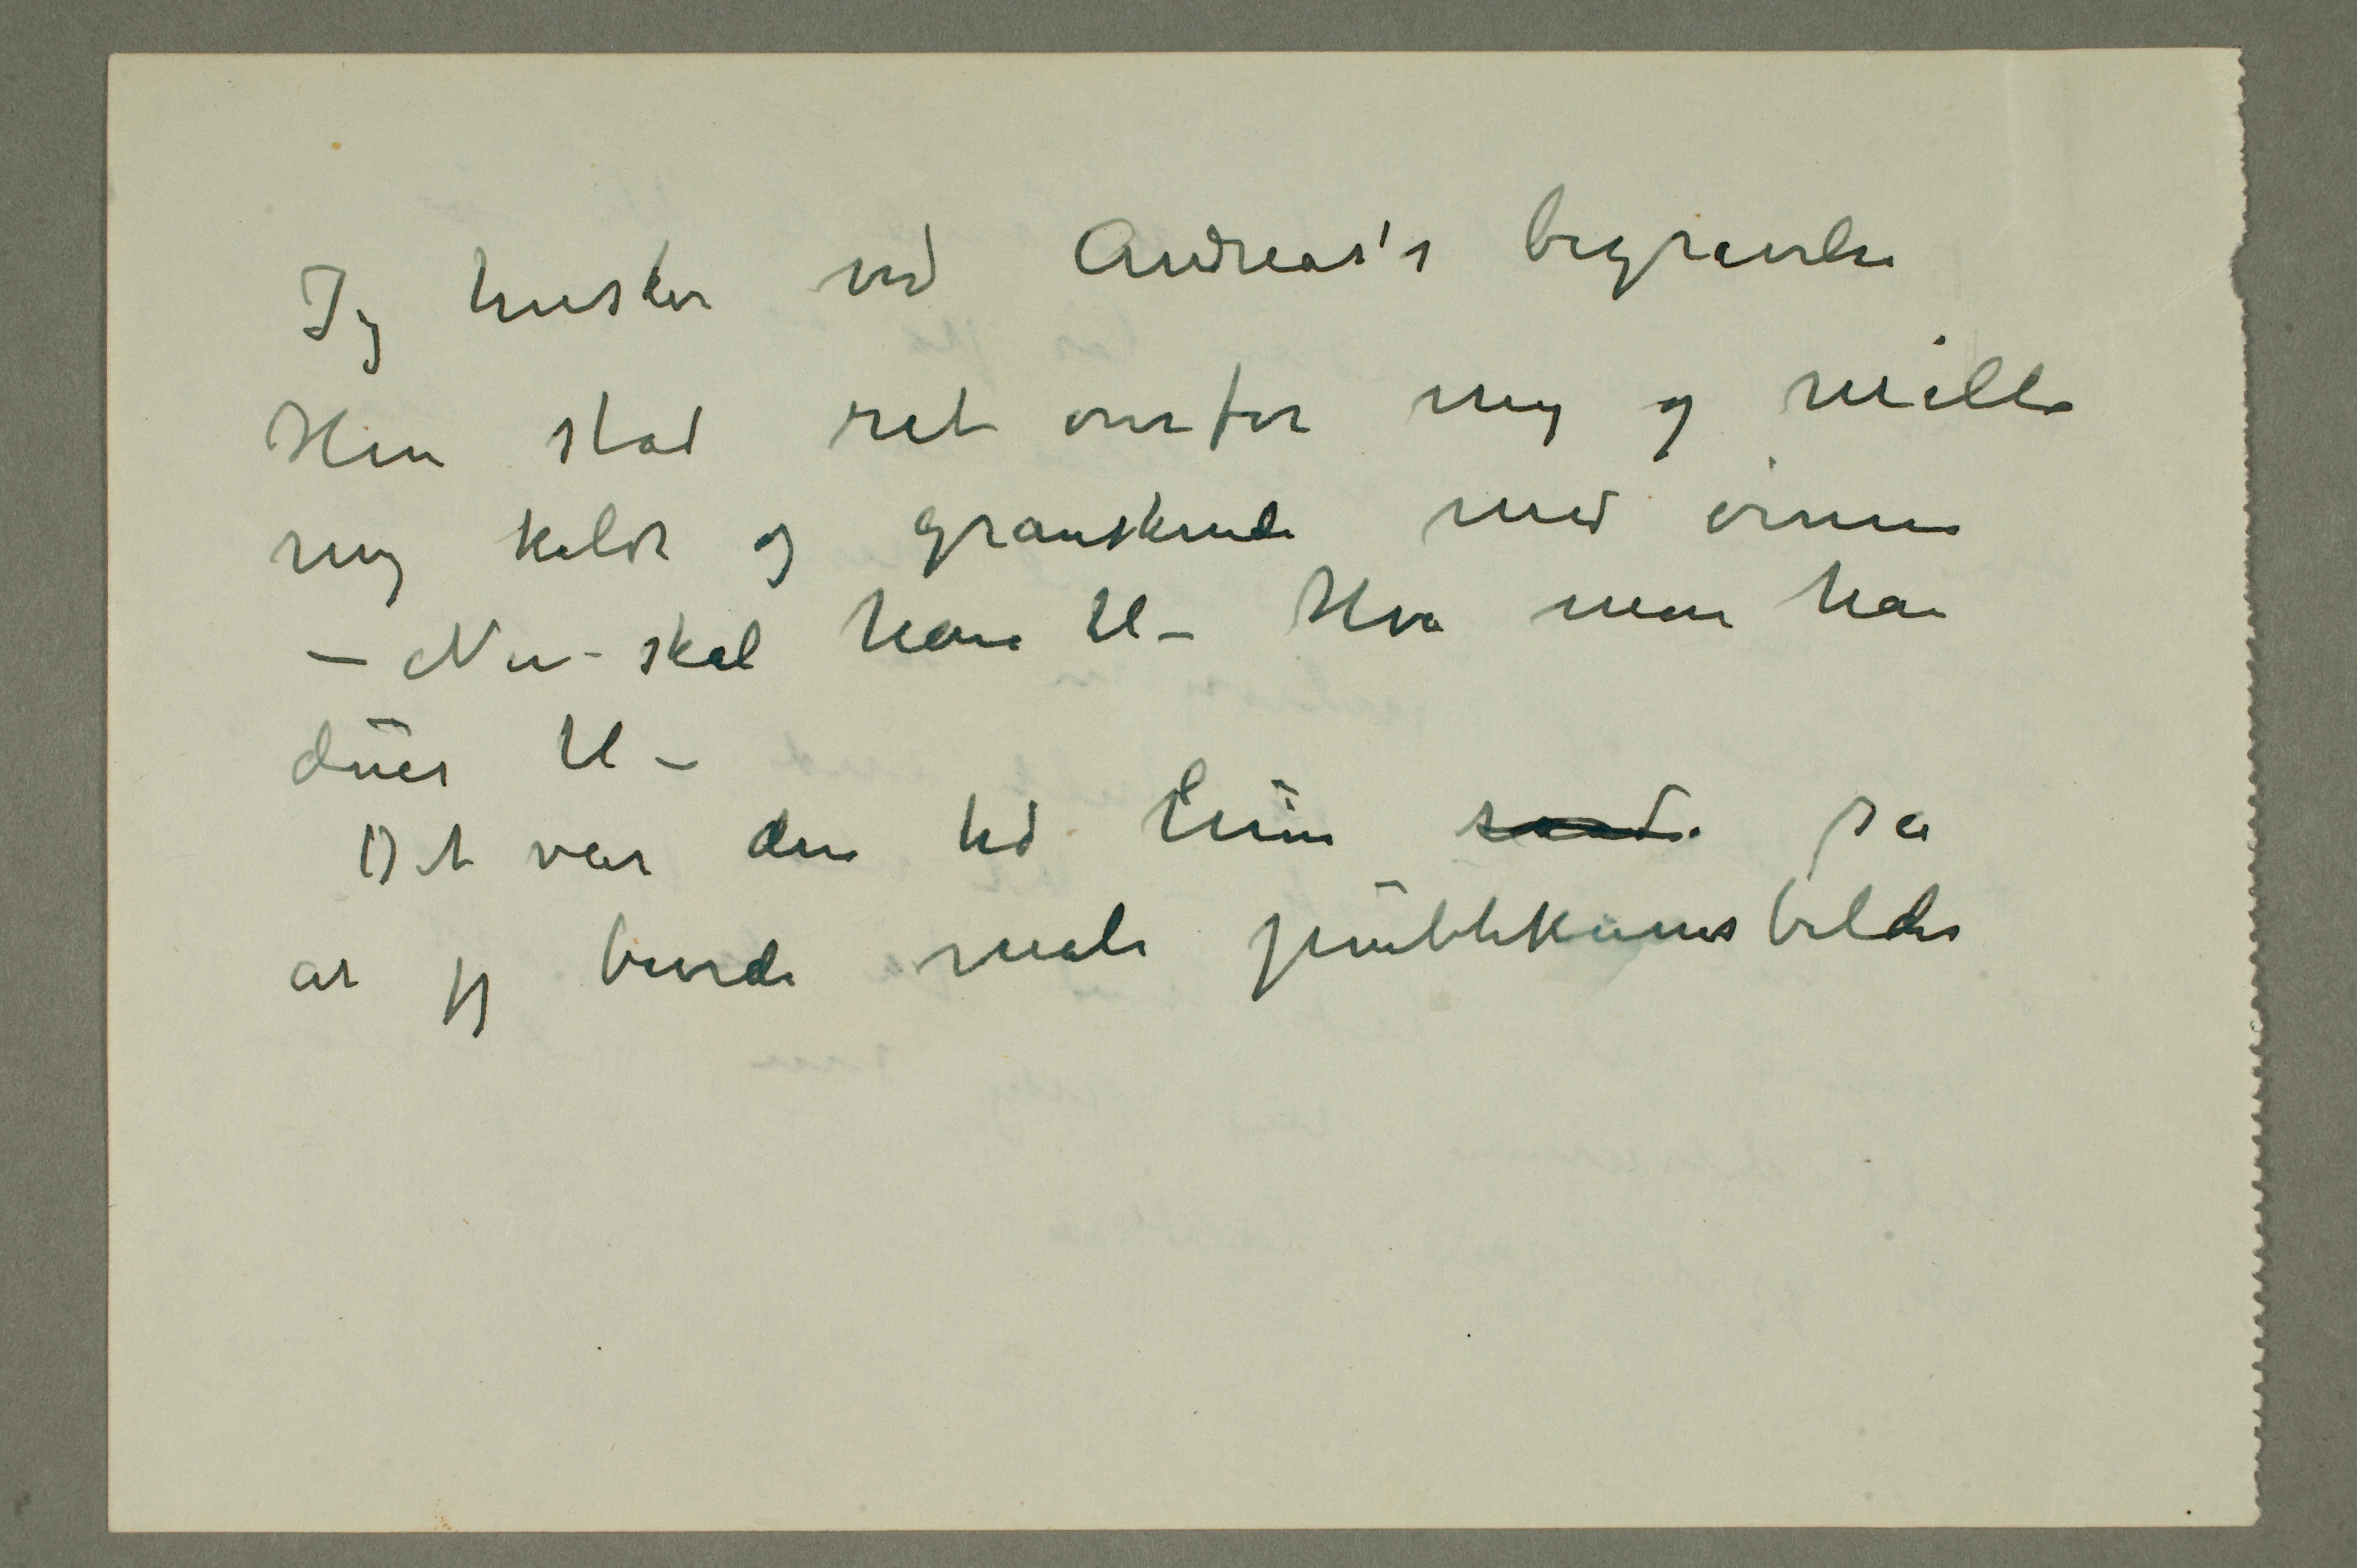 Jeg husker ved Andreas's begravelse
Hun stod ret overfor meg og målte
meg koldt og granskende med øinene
– Nu skal han til – Hva mon han
duer til –
Det var den tid hun sa
at jeg burde male publikumsbilder